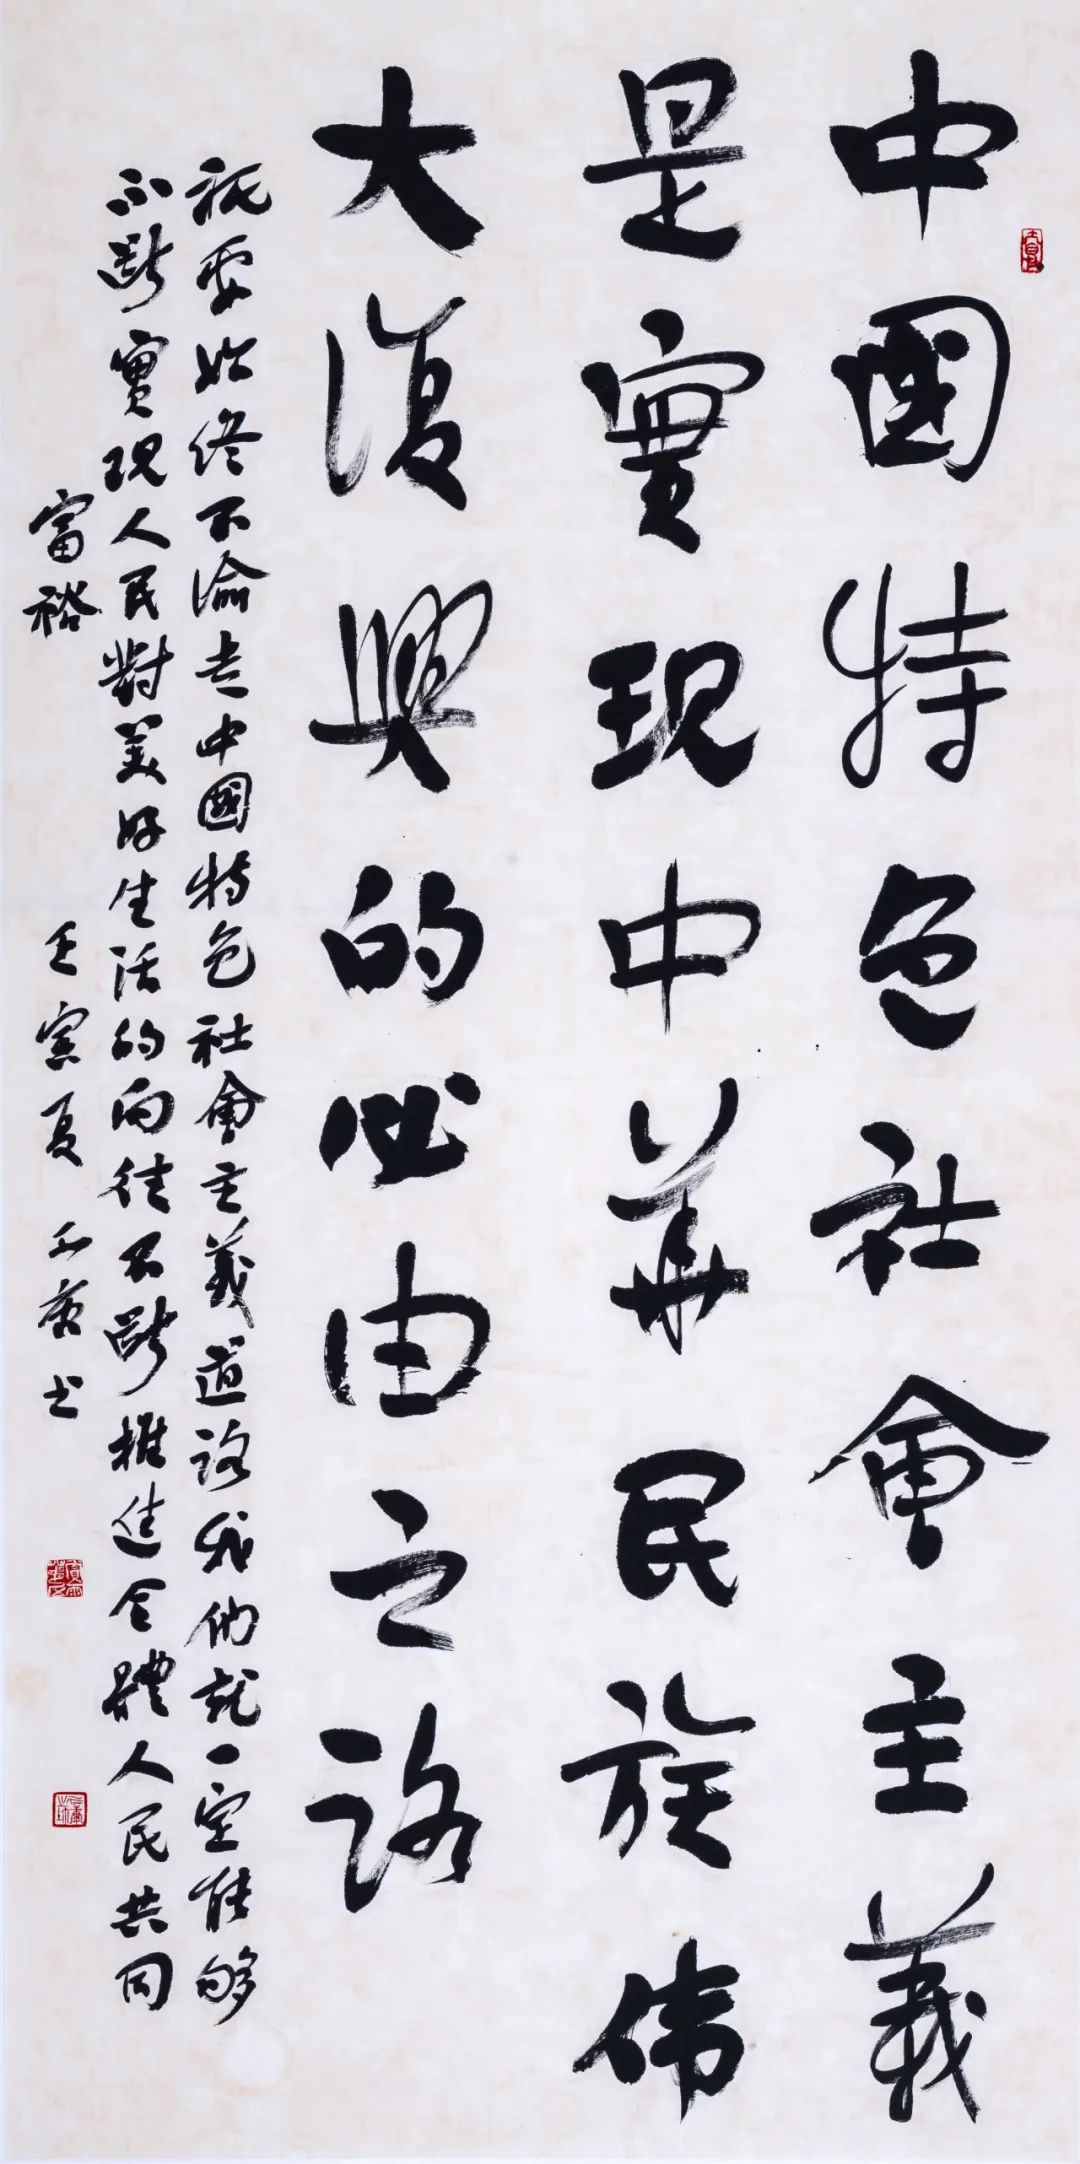 中國特色社會主義
是實現中華民族伟
大復興的必由之路
祇要始终不渝走中國特色社會主義道路我们就一定能够
不斷實現人民對美好生活的向往不斷推進全體人民共同
富裕
壬寅夏 书